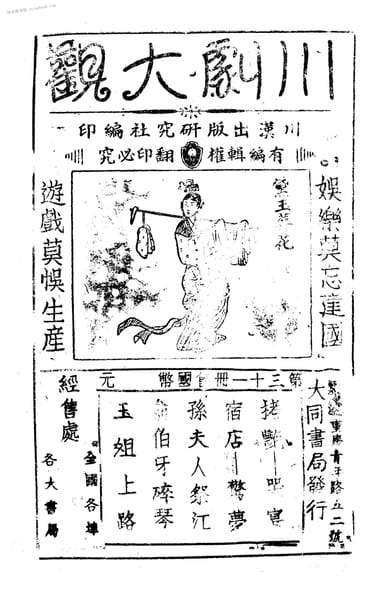 川劇大觀
川漢出版研究社編印
有編輯權 翻印必究
娛樂莫忘建國
黛玉葬花
遊戲莫悞生産
第三十一冊 國幣 元
大同書局發行
東 青年路五二號
拷艷 宴
宿店驚夢
孫夫人祭江
俞伯牙碎琴
玉姐上路
經售處
全國各埠
各大書局